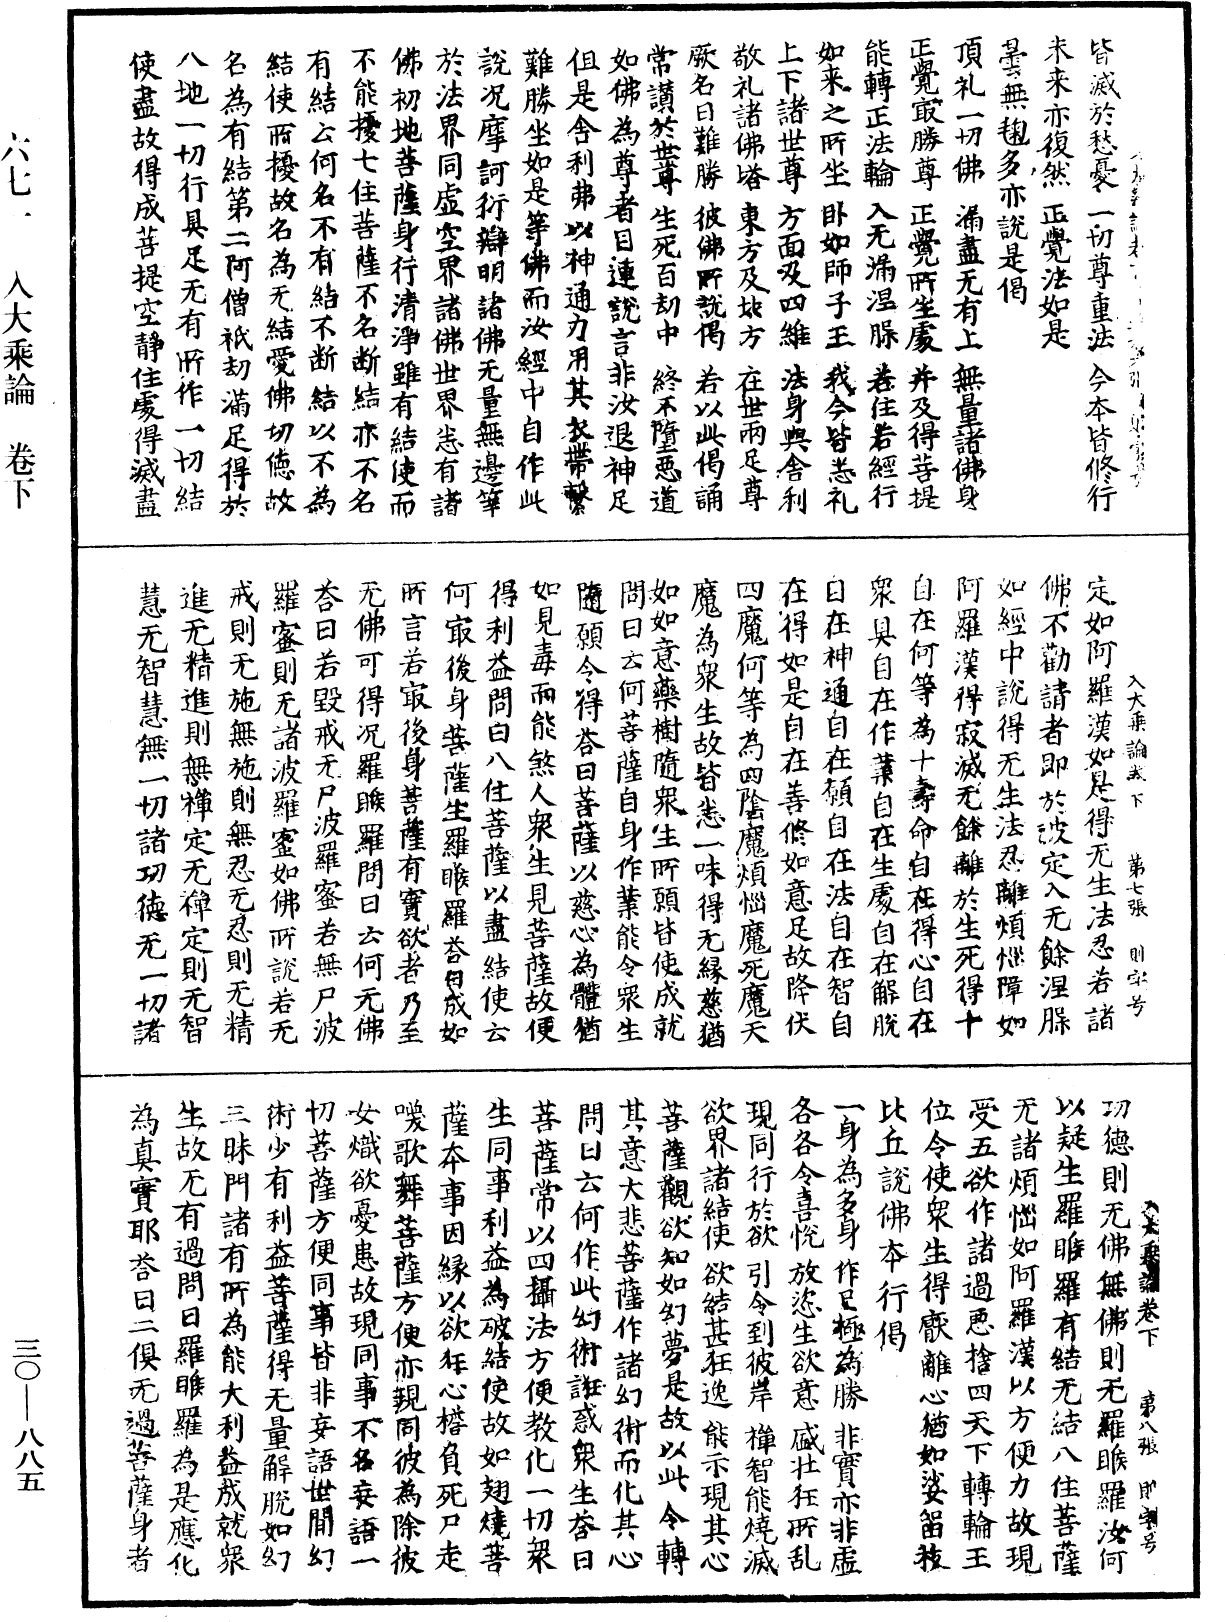 六七一　入大乘論　卷下
三〇—八八五
皆滅於愁憂　一切尊重法　今本皆修行
未来亦復然　正覺法如是
曇無毱多亦說是偈
頂礼一切佛　漏盡无有上　無量諸佛身
正覺㝡勝尊　正覺所生處　并及得菩提
能轉正法輪　入无漏涅槃　若住若經行
如来之所坐　卧如師子王　我今皆悉礼
上下諸世尊　方面及四維　法身與舍利
敬礼諸佛塔　東方及北方　在世兩足尊
厥名曰難勝　彼佛所說偈　若以此偈誦
常讃於世尊　生死百劫中　終不墮惡道
如佛為尊者目連說言非汝退神足
但是舍利弗以神通力用其衣帶繫
難勝坐如是等佛而汝經中自作此
說况摩訶衍辯明諸佛无量無邊筭
於法界同虛空界諸佛世界悉有諸
佛初地菩薩身行清淨雖有結使而
不能擾七住菩薩不名断結亦不名
有結云何名不有結不断結以不為
結使所擾故名為无結愛佛切德故
名為有結第二阿僧祇劫滿足得於
八地一切行具足无有所作一切結
使盡故得成菩提空靜住處得滅盡
入大乘論卷下　第七張　則字号
定如阿羅漢如是得无生法忍若諸
佛不勸請者即於彼定入无餘涅槃
如經中說得无生法忍離煩惱障如
阿羅漢得寂滅无餘離於生死得十
自在何等為十壽命自在得心自在
衆具自在作業自在生處自在解脫
自在神通自在願自在法自在智自
在得如是自在善修如意足故降伏
四魔何等為四陰魔煩惱魔死魔天
魔為衆生故皆悉一味得无緣慈猶
如如意藥樹隨衆生所願皆使成就
問曰云何菩薩自身作業能令衆生
隨願令得荅曰菩薩以慈心為體猶
如見毒而能煞人衆生見菩薩故便
得利益問曰八住菩薩以盡結使云
何㝡後身菩薩生羅睺羅荅曰成如
所言若㝡後身菩薩有實欲者乃至
无佛可得况羅睺羅問曰云何无佛
荅曰若毀戒无尸波羅蜜若無尸波
羅蜜則无諸波羅蜜如佛所說若无
戒則无施無施則無忍无忍則无精
進无精進則無禪定无禪定則无智
慧无智慧無一切諸功德无一切諸
入大乘論卷下　第八張　則字号
功德則无佛無佛則无羅睺羅汝何
以疑生羅睺羅有結无結八住菩薩
无諸煩惱如阿羅漢以方便力故現
受五欲作諸過惡捨四天下轉輪王
位令使衆生得厭離心猶如娑留枝
比丘說佛本行偈
一身為多身　作已極為勝　非實亦非虛
各各令喜悅　放恣生欲意　盛壮狂所乱
現同行於欲　引令到彼岸　禪智能燒滅
欲界諸結使　欲結甚狂逸　能示現其心
菩薩觀欲知如幻夢是故以此令轉
其意大悲菩薩作諸幻術而化其心
問曰云何作此幻術誑惑衆生荅曰
菩薩常以四攝法方便教化一切衆
生同事利益為破結使故如翅燒菩
薩本事因緣以欲狂心檐負死尸走
喚歌舞菩薩方便亦現同彼為除彼
女熾欲憂患故現同事不名妄語一
切菩薩方便同事皆非妄語世間幻
術少有利益菩薩得无量解脫如幻
三昧門諸有所為能大利益成就衆
生故无有過問曰羅睺羅為是應化
為真實耶荅曰二俱无過菩薩身者